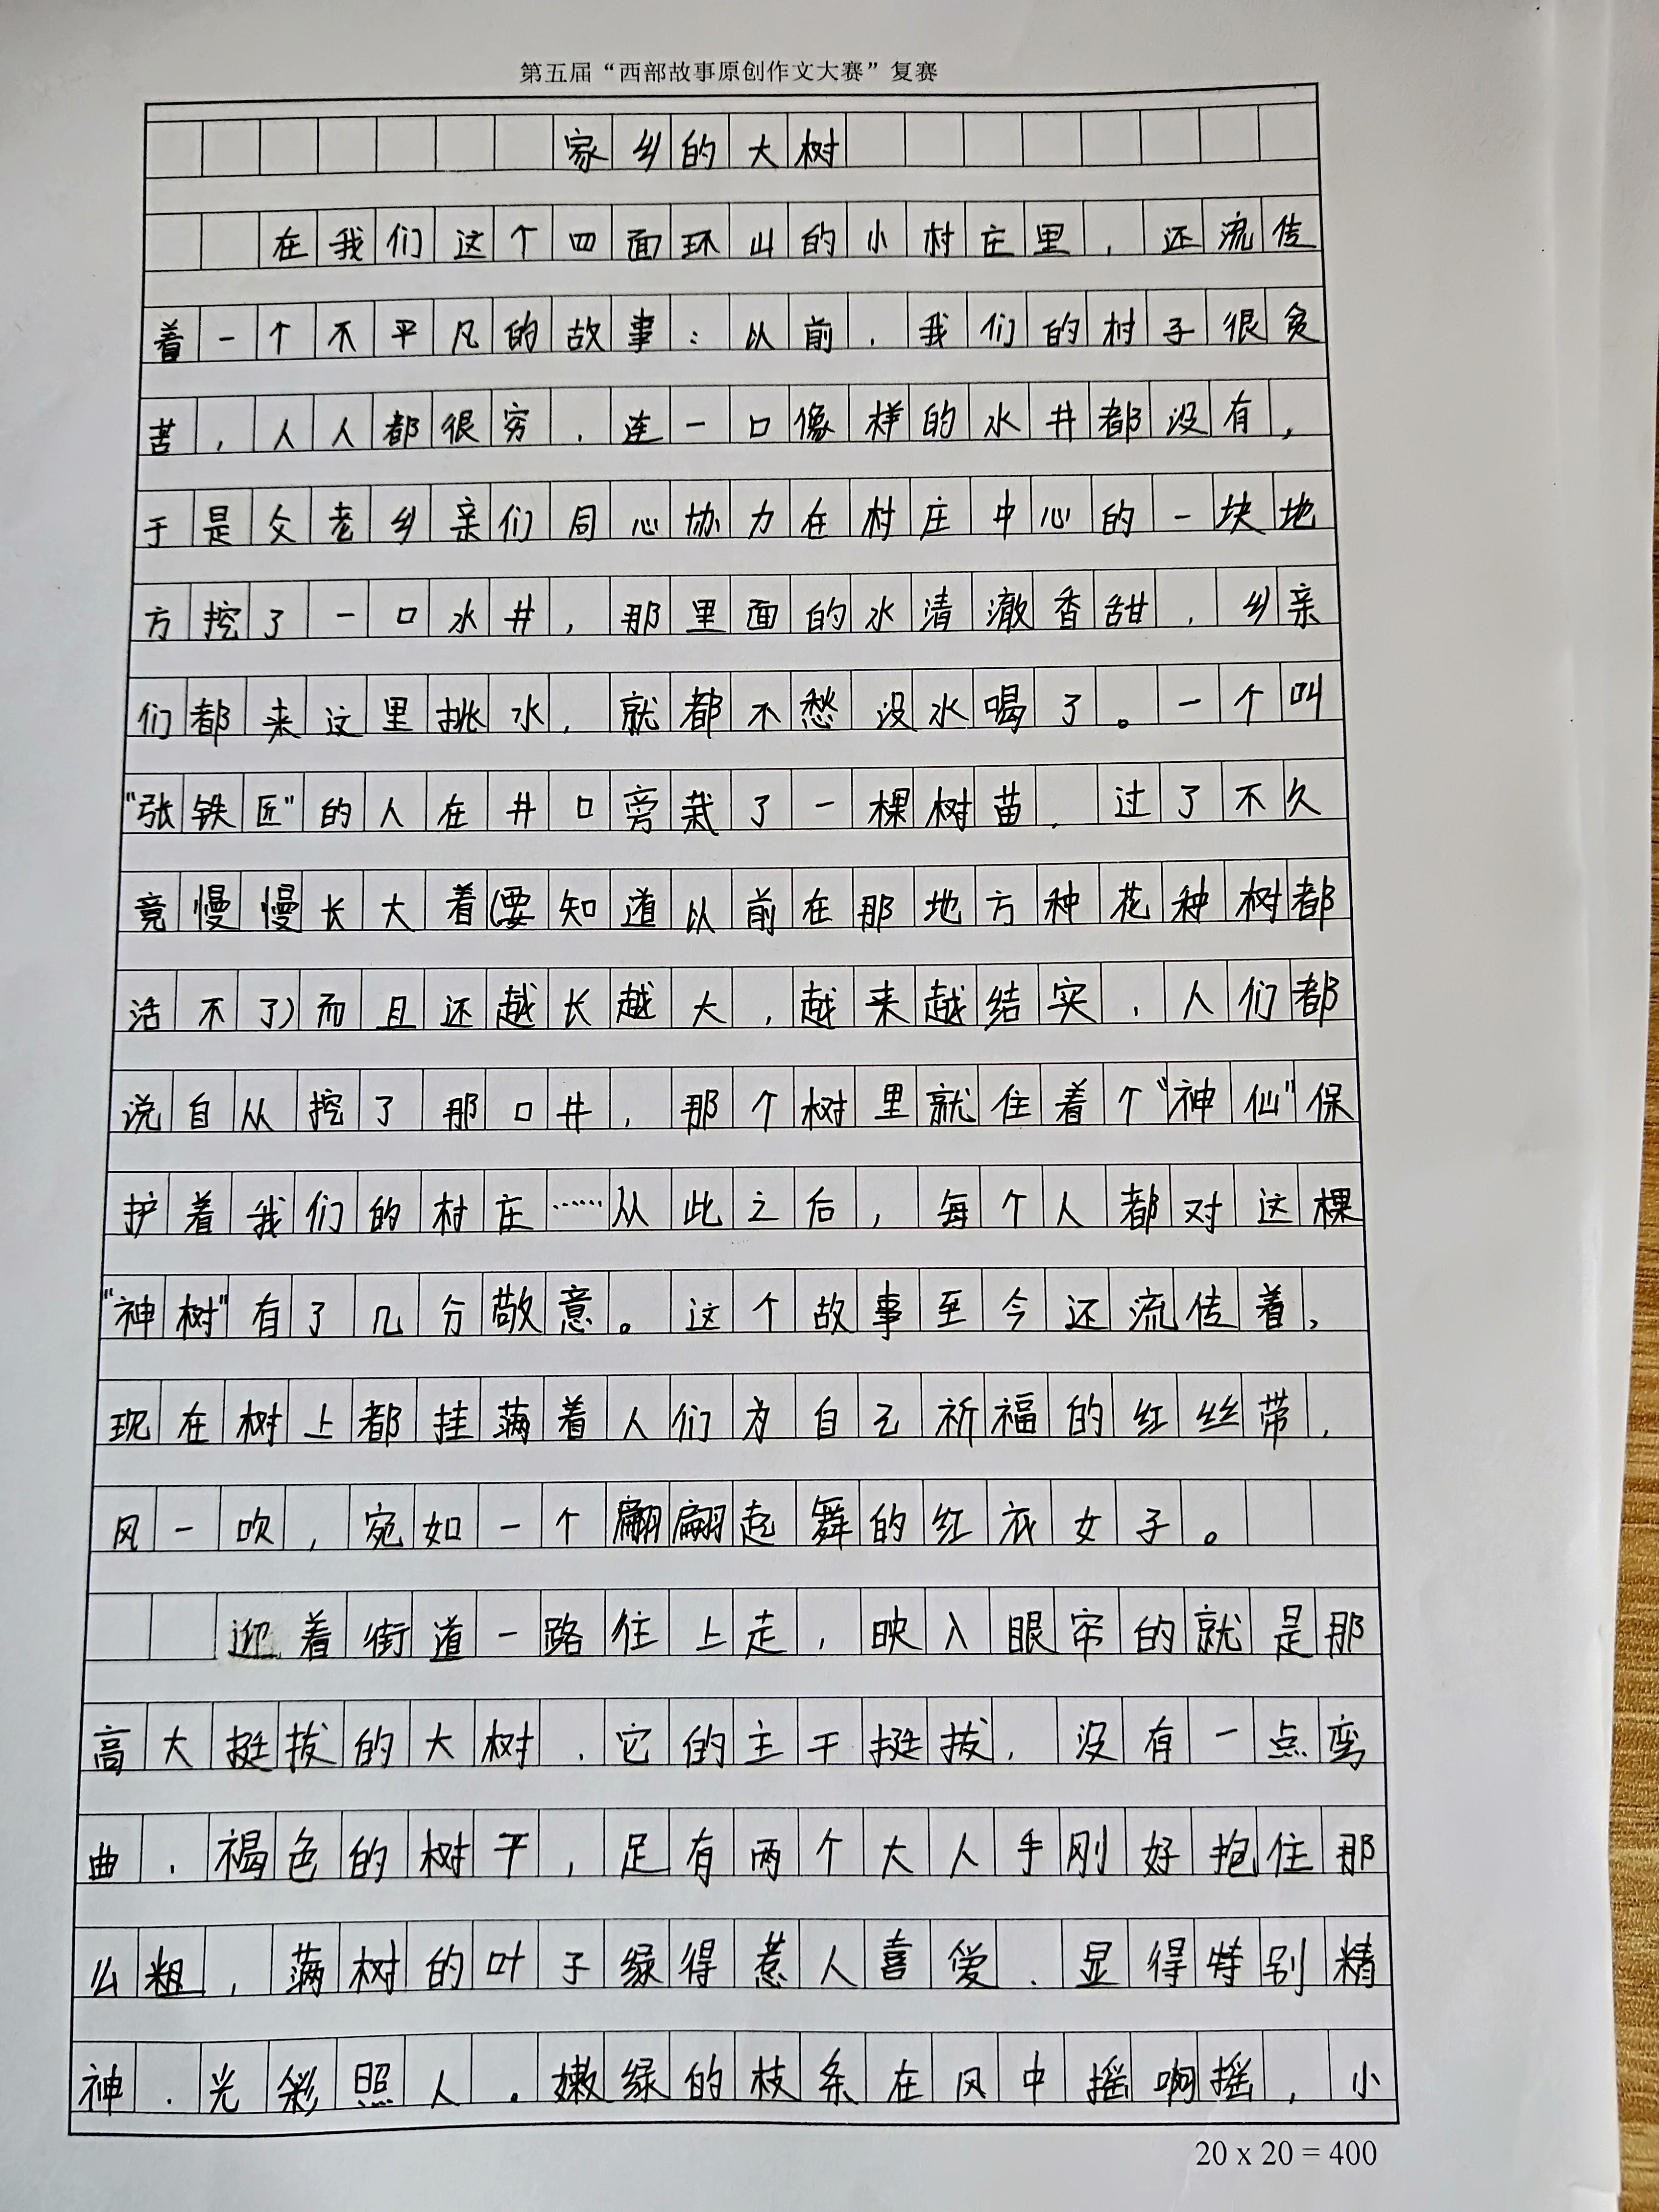 第五届“西部故事原创作文大赛”复赛
家乡的大树
在我们这个四面环山的小村庄里，还流传
着一个不平凡的故事：以前，我们的村子很贫
苦，人人都很穷，连一口像样的水井都没有，
于是父老乡亲们同心协力在村庄中心的一块地
方挖了一口水井，那里面的水清澈香甜，乡亲
们都来这里挑水，就都不愁没水喝了。一个叫
“张铁匠”的人在井口旁栽了一棵树苗，过了不久
竟慢慢长大着(要知道以前在那地方种花种树都
活不了)而且还越长越大，越来越结实，人们都
说自从挖了那口井，那个树里就住着个“神仙”保
护着我们的村庄……从此之后，每个人都对这棵
“神树”有了几分敬意。这个故事至今还流传着，
现在树上都挂满着人们为自己祈福的红丝带，
风一吹，宛如一个翩翩起舞的红衣女子。
迎着街道一路往上走，映入眼帘的就是那
高大挺拔的大树，它的主干挺拔，没有一点弯
曲，褐色的树干，足有两个大人手刚好抱住那
么粗，满树的叶子绿得惹人喜爱，显得特别精
神，光彩照人。嫩绿的枝条在风中摇啊摇，小
20 x 20 = 400